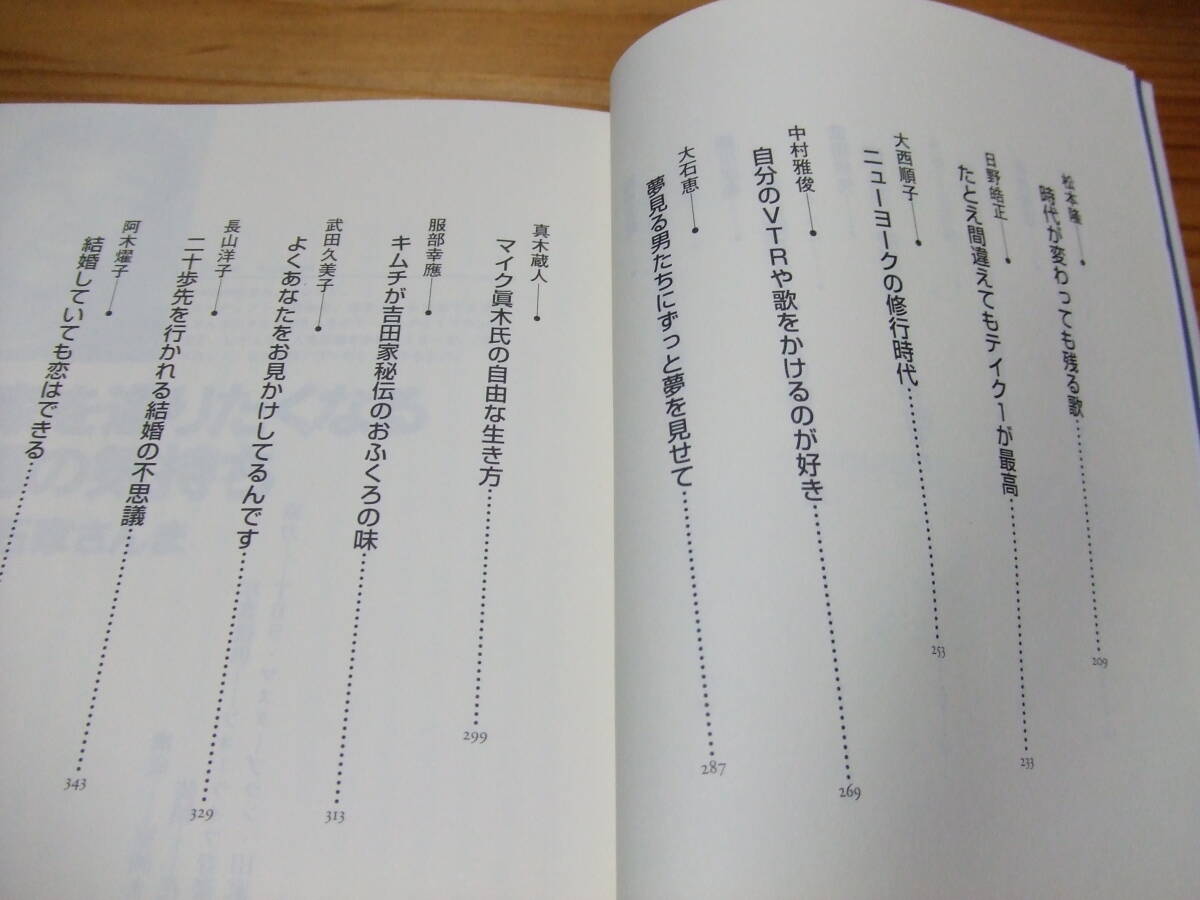 松本隆
時代が変わっても残る歌 209
日野皓正
たとえ間違えてもテイク1が最高 233
大西順子
ニューヨークの修行時代 253
中村雅俊
自分のVTRや歌をかけるのが好き 269
大石恵
夢見る男たちにずっと夢を見せて 287
真木蔵人
マイク眞木氏の自由な生き方 299
服部幸應
キムチが吉田家秘伝のおふくろの味 313
武田久美子
よくあなたをお見かけしてるんです 329
長山洋子
二十歩先を行かれる結婚の不思議 343
阿木燿子
結婚していても恋はできる